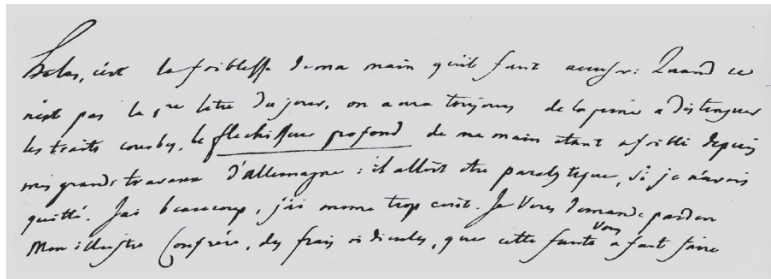 helas, c'est la foiblesse de ma main qu'il faut accuser: Quand ce
n'est pas la 1re letre du jour, on a eu toujours de la peine a distinguer
les traits courbes, le flechisseur profond de ma main etant afoibli depuis
mes grands travaux d'allemagne: il alloit etre paralytique, si je n'avois
quitté. J'ai beaucoup, j'ai meme trop ecrit. Je Vous demande pardon
Mon illustre Confrére, des frais ridicules, que cette faute Vous a fait faire